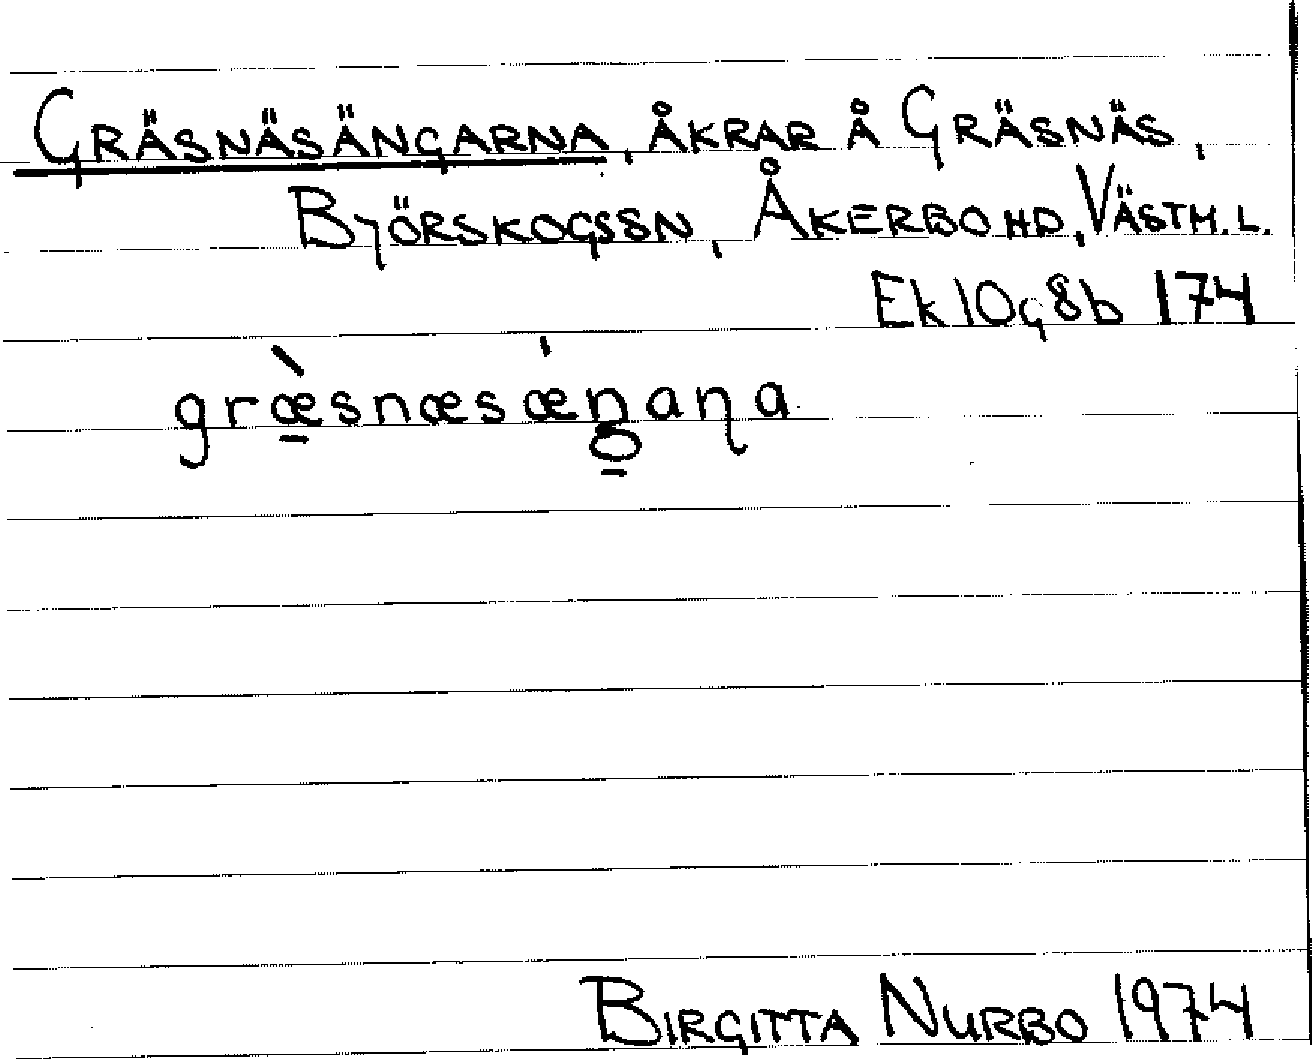 GRÄSNÄSÄNGARNA, ÅKRAR Å GRÄSNÄS,
BJÖRSKOGSSN, ÅKERBO HD, VÄSTM.L.
Ek 10g8b 174
græ̠̀snæsæ̍ŋaɳa
BIRGITTA NURBO 1974